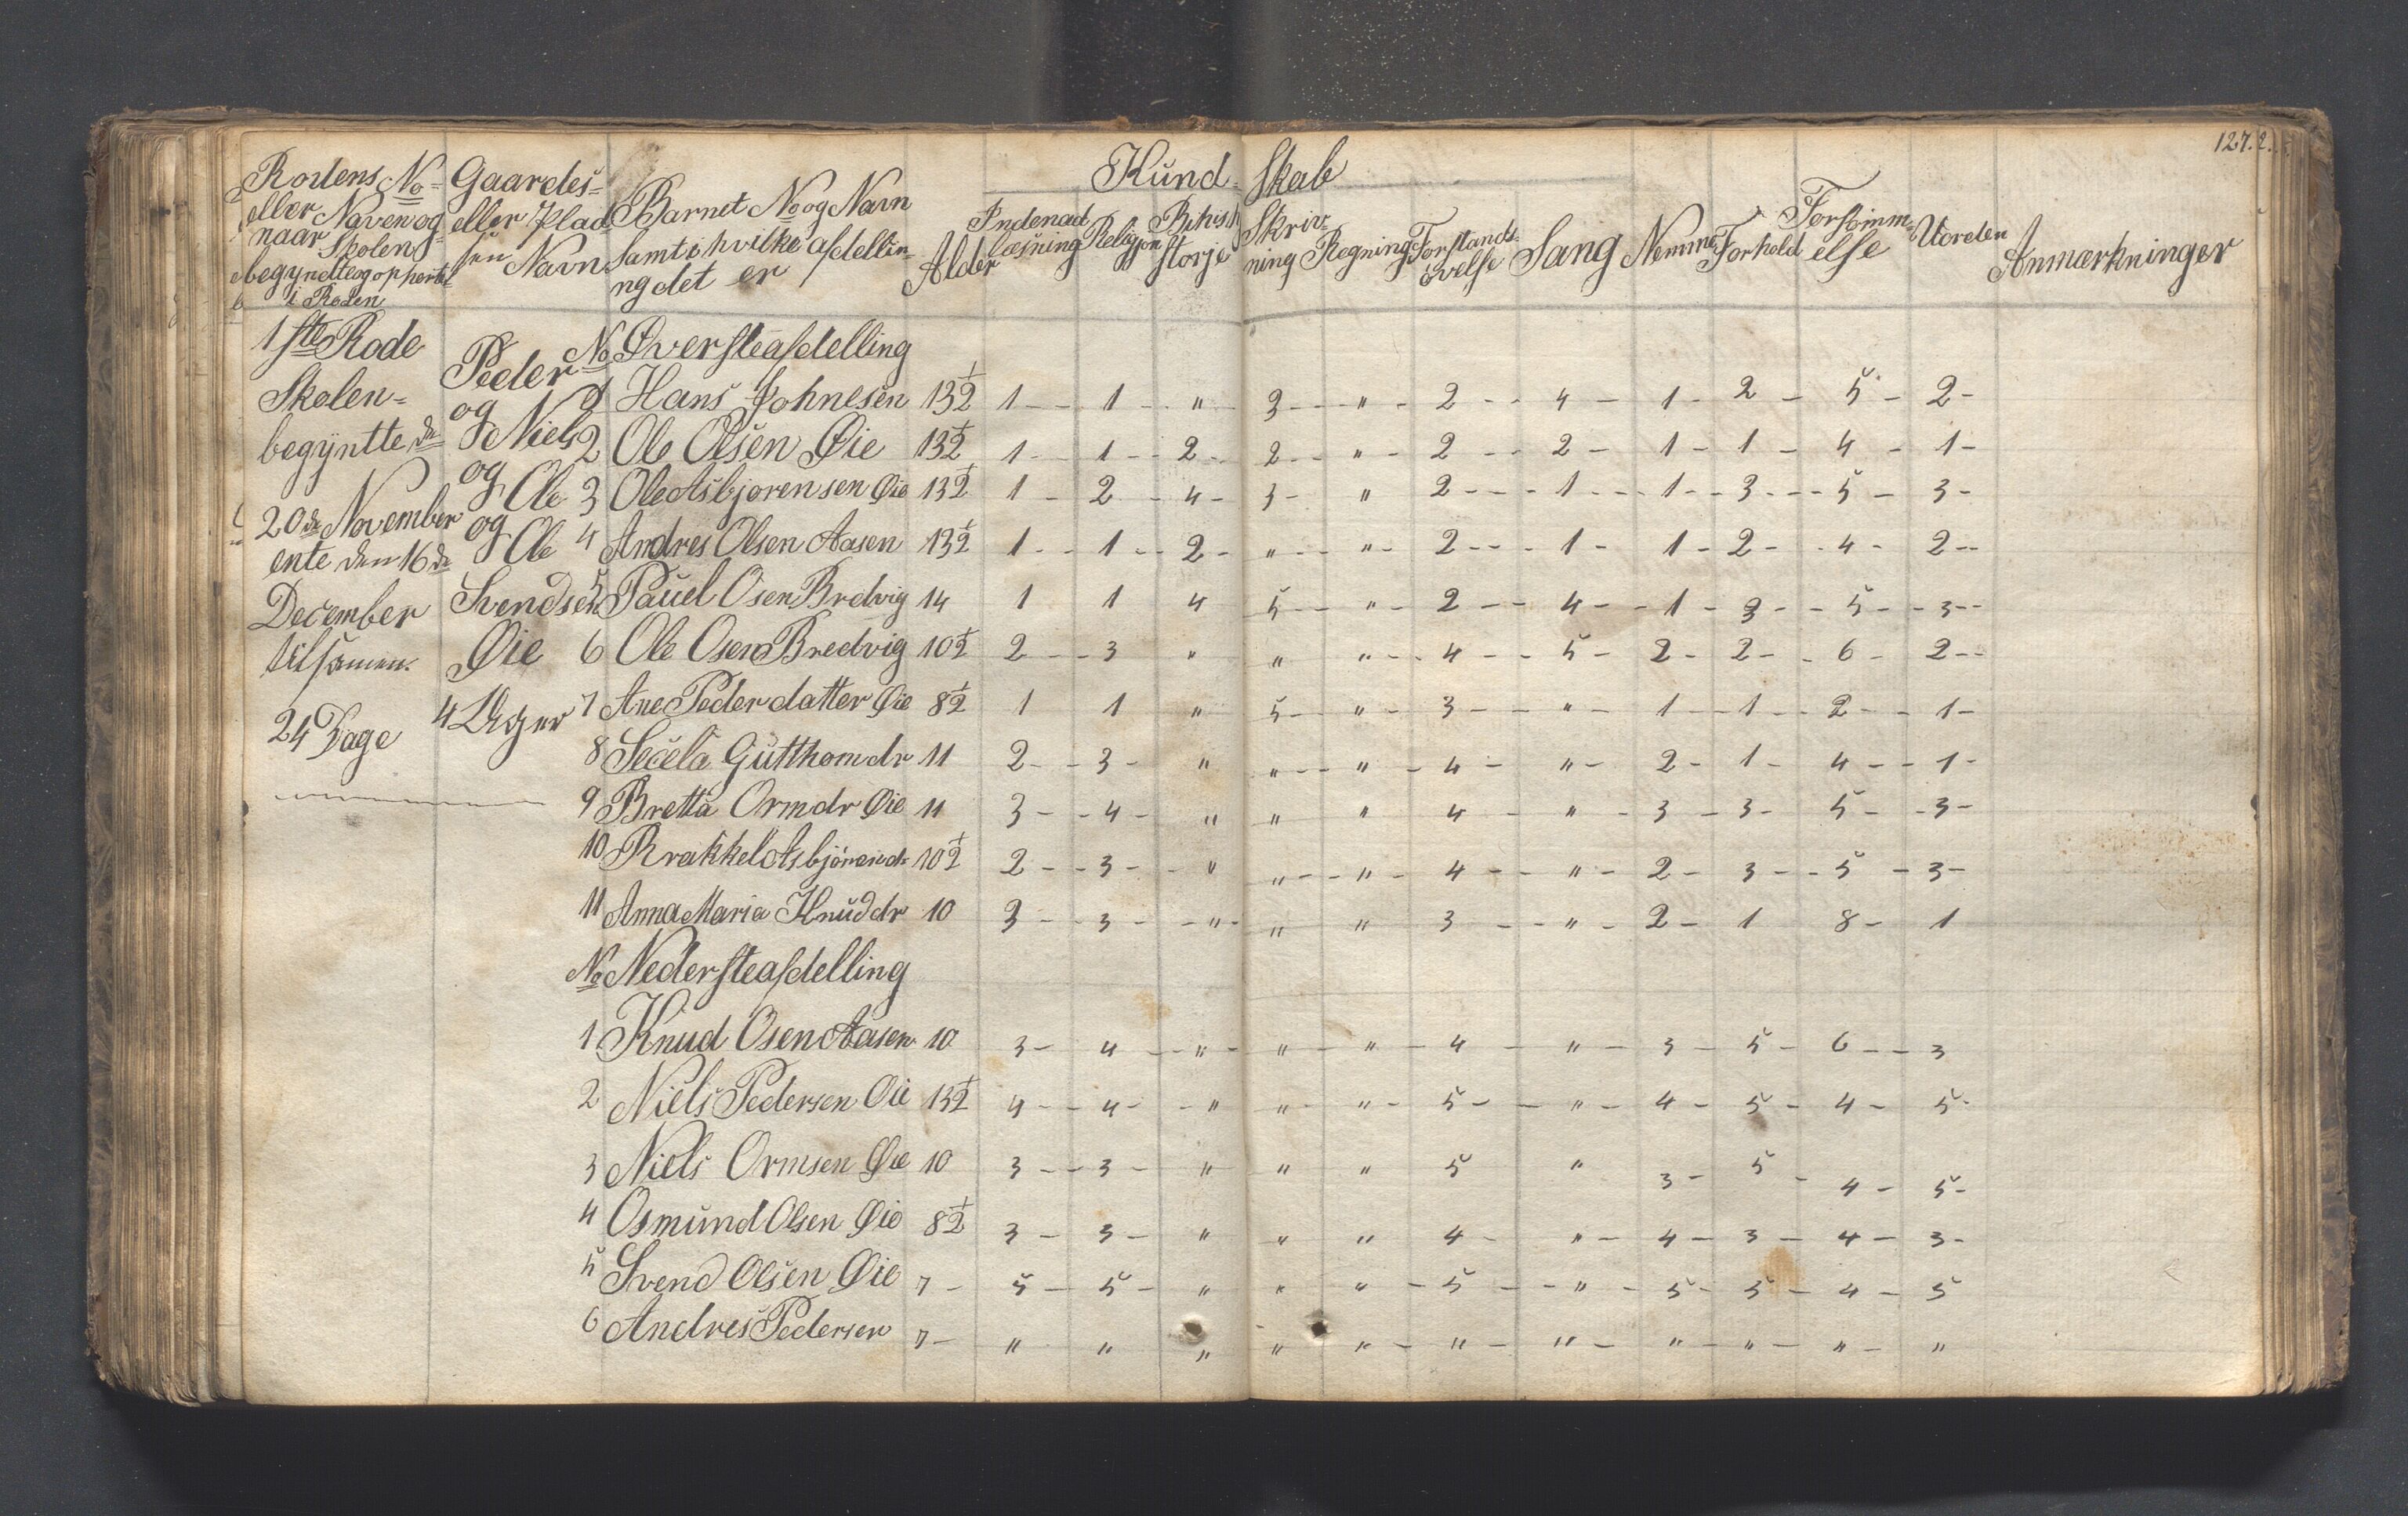 127.2.
Kund- Skab
Rodens No= Gaardes= Barnet No og Navn
eller Naven og eller Plad samt i hvilke afdellin-
naar Skolen sen Navn ng det er
begyndte og ophørte
i Roden
Alder Indenad læsning Religjon Bibisk storje Skriv- ning Regning Forstands- øvelse Sang Nemme Forhold Forsømm- else Uorden Anmærkninger
1ste Rode
Skolen=
begyntte de
20de November
ente den 16de
December
tilsamen
24 Dage
Peder
og Niels
og Ole
og Ole
Svendsen
Øie
4 Uger
No Øversteafdelling
1 Hans Johnesen 13½ 1 - - 1 - - " - 3 - - " - 2 - - 4 - 1 - 2 - 5 - 2 -
2 Ole Olsen Øie 13½ 1 - - 1 - - 2 - 2 - - " - 2 - - 2 - 1 - 1 - 4 - 1 -
3 Ole Asbjørensen Øie 13½ 1 - 2 - 4 - 3 - " 2 - - - 1 - - - 1 - - 3 - - - 5 - 3 -
4 Andres Olsen Aasen 13½ 1 - - 1 - - 2 - " - - " - 2 - - - 1 - 1 - 2 - - 4 - 2 - -
5 Pauel Osen Bredvig 14 1 1 4 5 - - " - 2 - - 4 - - 1 - 3 - - 5 - - 3 - -
6 Ole Osen Bredvig 10½ 2 - - 3 " " " - - 4 - - 5 - 2 - 2 - - 6 - 2 - -
7 Ane Pederdatter Øie 8½ 1 1 " 5 - - " - 3 - - " - 1 - 1 - - 2 - - 1 -
8 Secela Gutthomdr 11 2 - - 3 - " " - - " - 4 - " - 2 - 1 - 4 - - 1 -
9 Bretta Ormdr Øie 11 3 - - 4 - " " " 4 - " - 3 - 3 - 5 - - 3 -
10 Rrakkel Asbjörendr 10½ 2 - - 3 - - " " - - " - 4 - - " - 2 - 3 - - 5 - 3 -
11 Anna Maria Knuddr 10 3 - - 3 - - " - " " 3 - - " - 2 - 1 8 - 1
No Nedersteafdelling
1 Knud Osen Aasen 10 3 - 4 - - " - " - " - 4 - " - 3 - 5 - 6 - - 3
2 Niels Pedersen Øie 13½ 4 - - 4 - - " " - " - 5 - - " - 4 - 5 - 4 - 5 -
3 Niels Ormsen Øie 10 3 - - 3 - " " " 5 " 3 - 5 - 4 - 5 -
4 Osmund Olsen Øie 8½ 3 - 3 - " " " 4 - " - 4 - 3 - 4 - 3 -
5 Svend Olsen Øie 7 - 5 - 5 - " " " - 5 - - " - 5 - 5 - 4 - 5
6 Andres Pedersen 7 - " " " " " - " - " - " - " - " - "